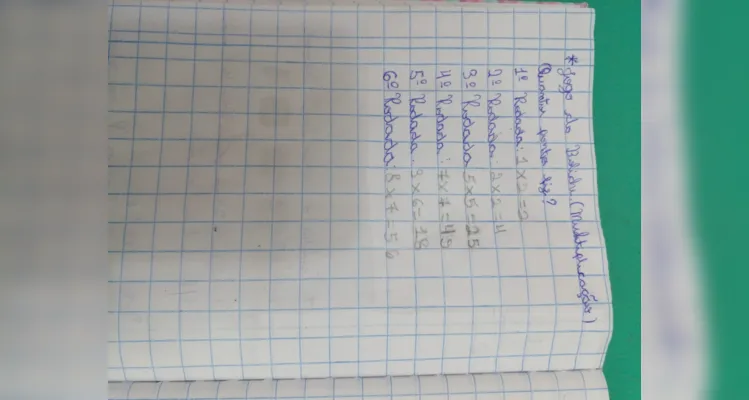 * Jogo do Boliche (Multiplicação)
Quantos pontos fiz?
1º Rodada: 1x2=2
2º Rodada: 2x2=4
3º Rodada 5x5=25
4º Rodada: 7x7=49
5º Rodada: 3x6=18
6º Rodada: 8x7=56